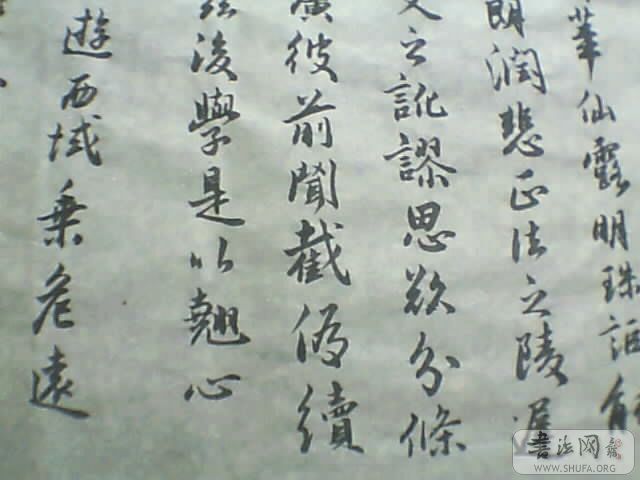 華仙露明珠詎能
朗潤悲正法之陵遲
文之訛謬思欲分條
廣彼前聞截偽續
茲後學是以翹心
遊西域乗危遠
書法网
WWW.SHUFA.ORG